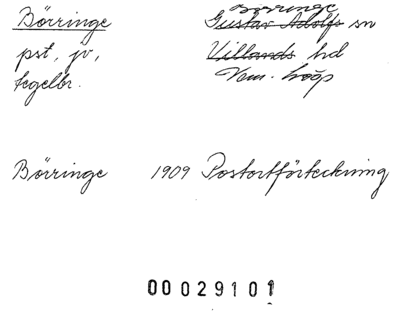 Börringe
pst, jv,
tegelbr.
Börringe
Gustav Adolfs sn
Villands hd
Vem. hög
Börringe 1909 Postortförteckning
00029101